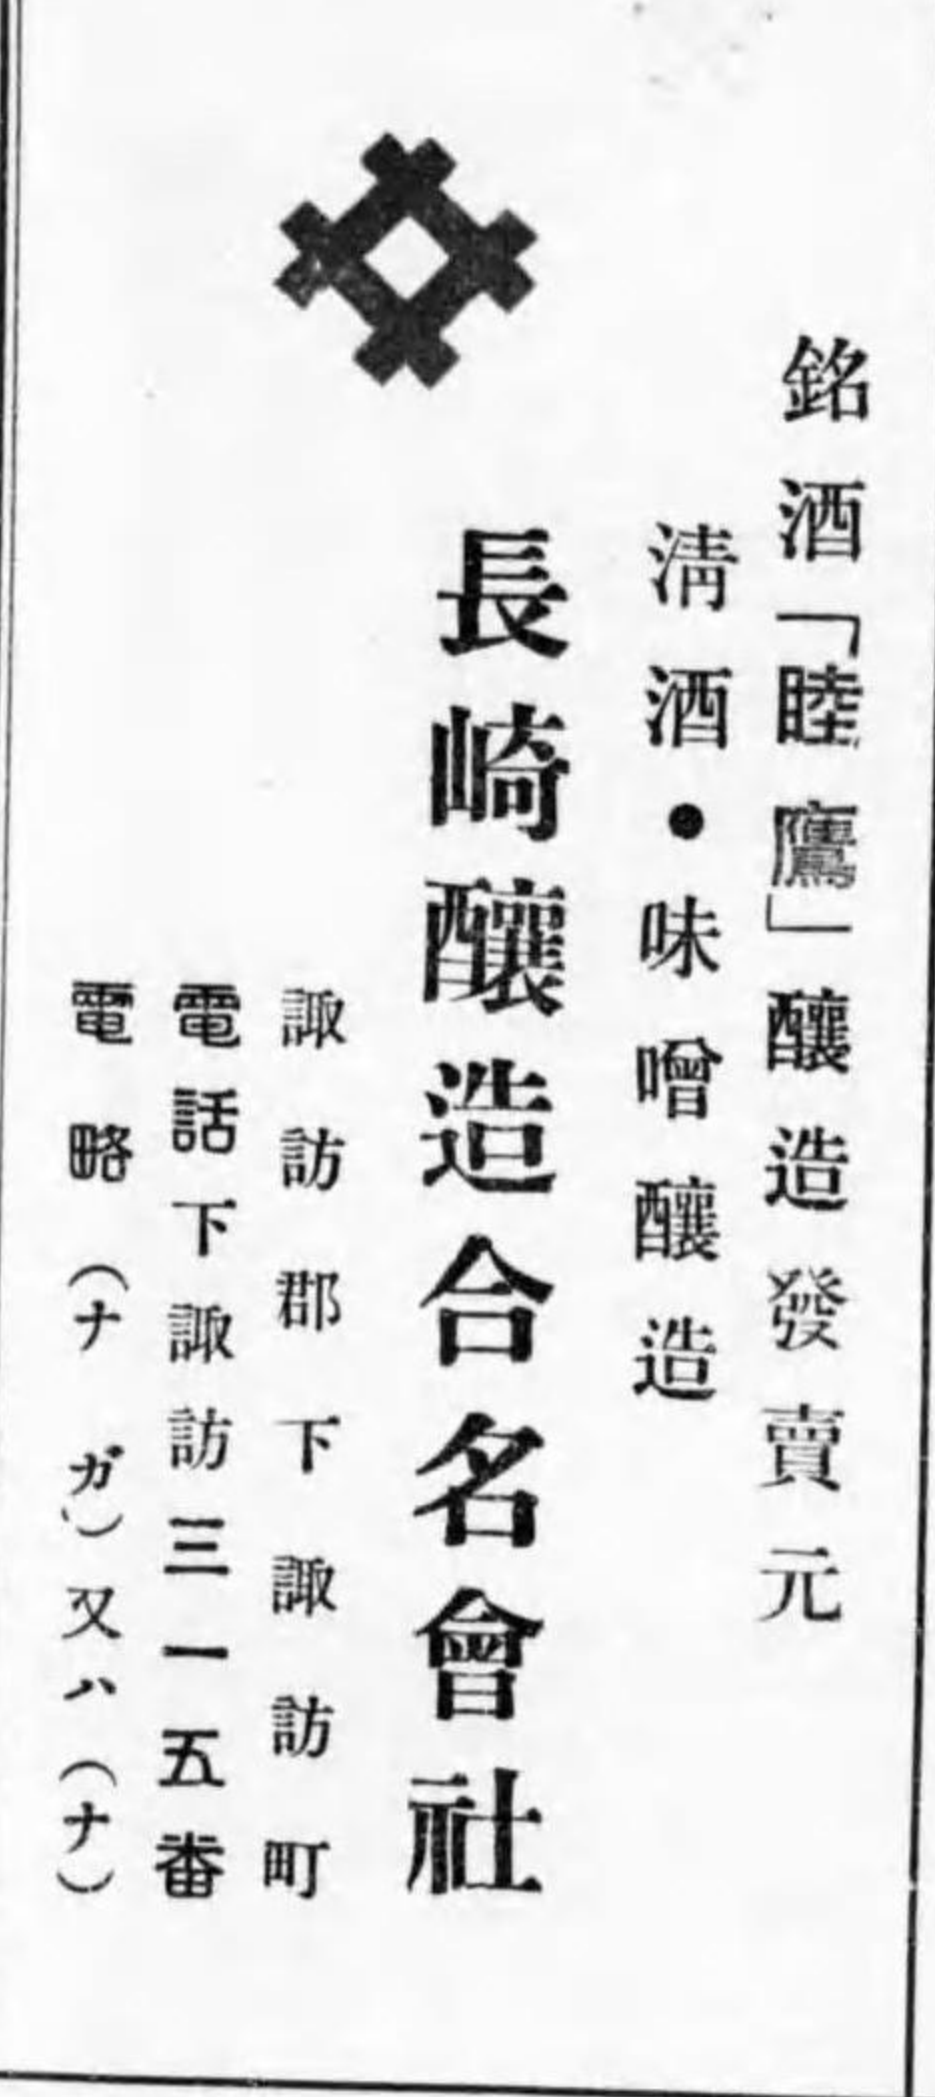 銘酒「睦鷹」釀造發賣元
淸酒●味噌釀造
長崎釀造合名會社
諏訪郡下諏訪町
電話下諏訪三一五番
電略（ナガ）又ハ（ナ）